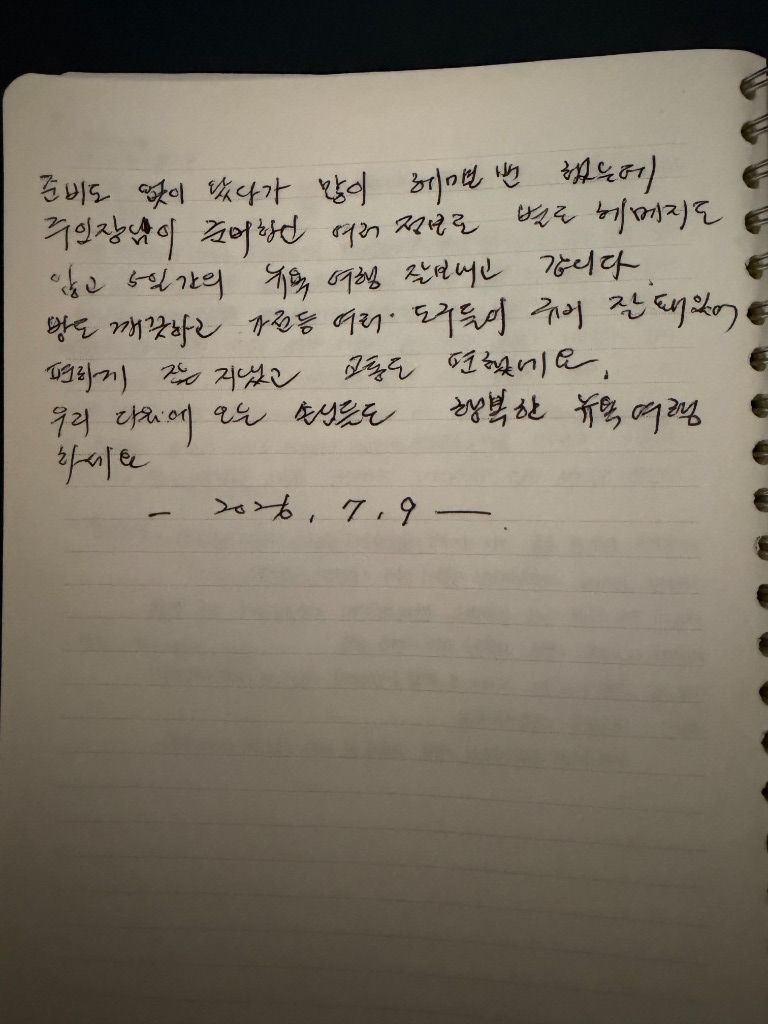 준비도 없이 왔다가 많이 헤멜 번 했는데
주인장님이 준비하신 여러 정보로 별로 헤메지도
않고 5일간의 뉴욕 여행 잘보내고 갑니다.
방도 깨끗하고 가전등 여러 도구들이 구비 잘 돼있어
편하게 잘 지냈고 교통도 편했네요.
우리 다음에 오는 손님들도 행복한 뉴욕 여행
하세요
- 2026. 7. 9 —